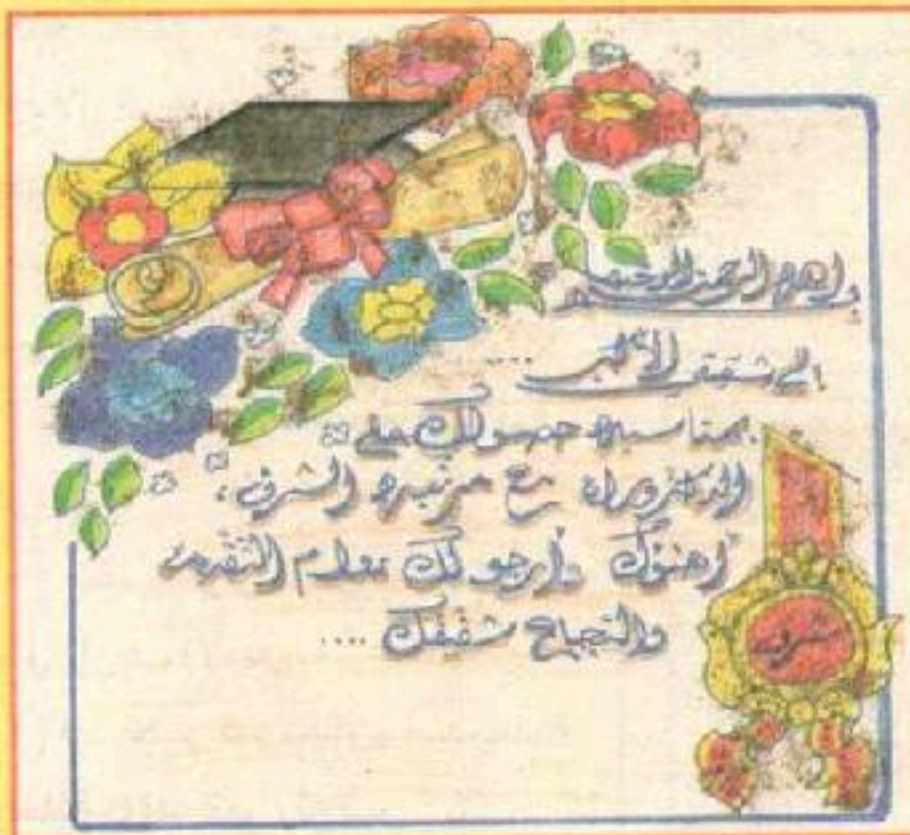 بسم الله الرحمن الرحيم
إلى شقيقي الأكبر ....
بمناسبة حصولك على
الدكتوراه مع مرتبة الشرف،
أهنؤك وأرجو لك دوام التقدم
والنجاح شقيقك ....
شرف